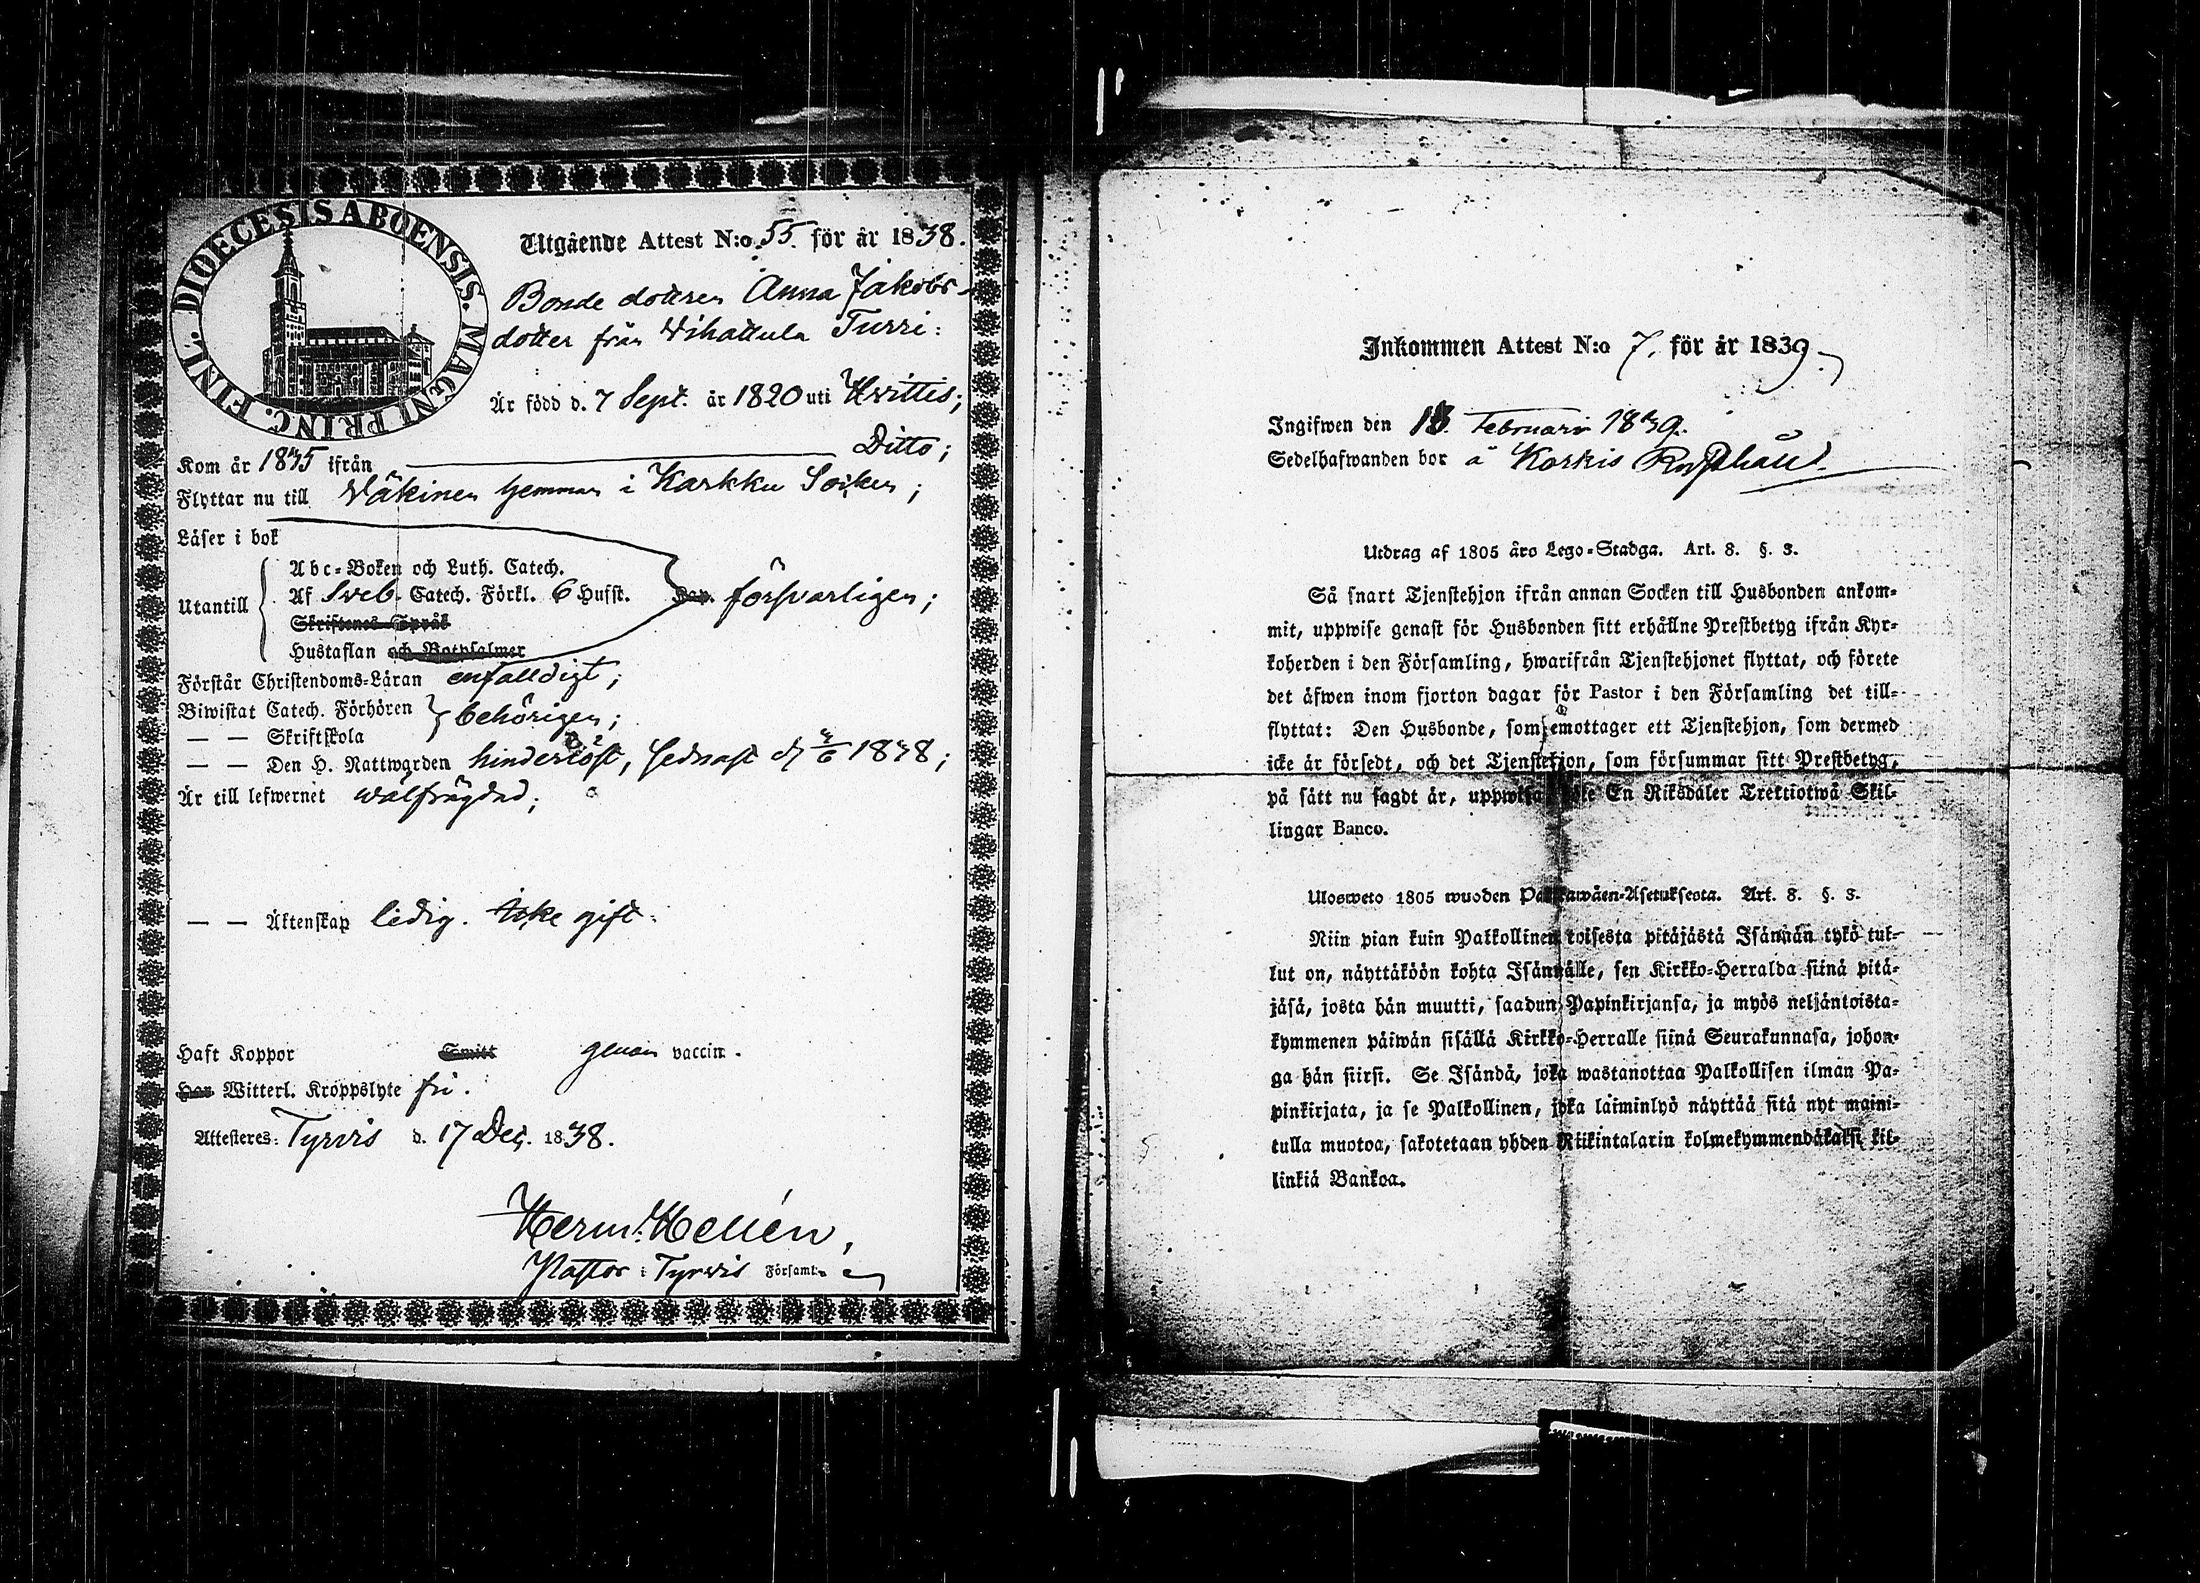 DIOECESIS ABOENSIS. MAGNI PRINC. FINL.
Utgående Attest N:o 55. för år 1838.
Bonde dottren Anna Jakobs-
dotter från Vihattula Turri:
Är född d. 7 Sept. år 1820 uti Hvittis;
Kom år 1835 ifrån Ditto;
Flyttar nu till Väkinen hemman i Karkku Socken;
Läser i bok
Utantill
Abc-Boken och Luth. Catech.
Af Sveb. Catech. Förkl. 6 Hufst. försvarligen;
Skriftenes Språk
Hustaflan och Botpsalmer
Förstår Christendoms-Läran enfalldigt;
Biwistat Catech. Förhören
behörigen;
— — Skriftskola
— — Den H. Nattwarden hinderlöst, sednast d. 3/6 1838;
Är till lefwernet wälfrägdad;
— — Äktenskap ledig. Icke gift.
Haft Koppor Smitt genom vaccin.
Har Witterl. Kroppslyte fri.
Attesteres: Tyrvis d. 17 Dec. 1838.
Herm. Hellén,
Pastor i Tyrvis Församl:
Inkommen Attest N:o 7. för år 1839.
Ingifwen den 18. Februari 1839.
Sedelhafwanden bor å Korkis
Utdrag af 1805 års Lego-Stadga. Art. 8. §. 3.
Så snart Tjenstehjon ifrån annan Socken till Husbonden ankom-
mit, uppwise genast för Husbonden sitt erhållne Prestbetyg ifrån Kyr-
koherden i den Församling, hwarifrån Tjenstehjonet flyttat, och förete
det äfwen inom fjorton dagar för Pastor i den Församling det till-
flyttat: Den Husbonde, som emottager ett Tjenstehjon, som dermed
icke är försedt, och det Tjenstehjon, som försummar sitt Prestbetyg,
på sätt nu sagdt är, uppwisa böte En Riksdaler Trettiotwå Skil-
lingar Banco.
Ulosweto 1805 wuoden Palkkawäen-Asetuksesta. Art. 8. §. 3.
Niin pian kuin Palkollinen toisesta pitäjästä Isännän tykö tul-
lut on, näyttäköön kohta Isännälle, sen Kirkko-Herralda siinä pitä-
jäsä, josta hän muutti, saadun Papinkirjansa, ja myös neljäntoista-
kymmenen päiwän sisällä Kirkko-Herralle siinä Seurakunnasa, johon-
ga hän siirsi. Se Isändä, joka wastanottaa Palkollisen ilman Pa-
pinkirjata, ja se Palkollinen, joka laiminlyö näyttää sitä nyt maini-
tulla muotoa, sakotetaan yhden Riikintalarin kolmekymmendäkaksi kil-
linkiä Bankoa.